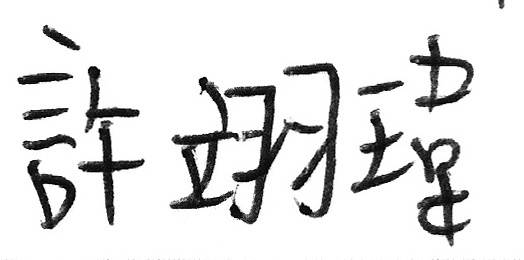 許翊瑋